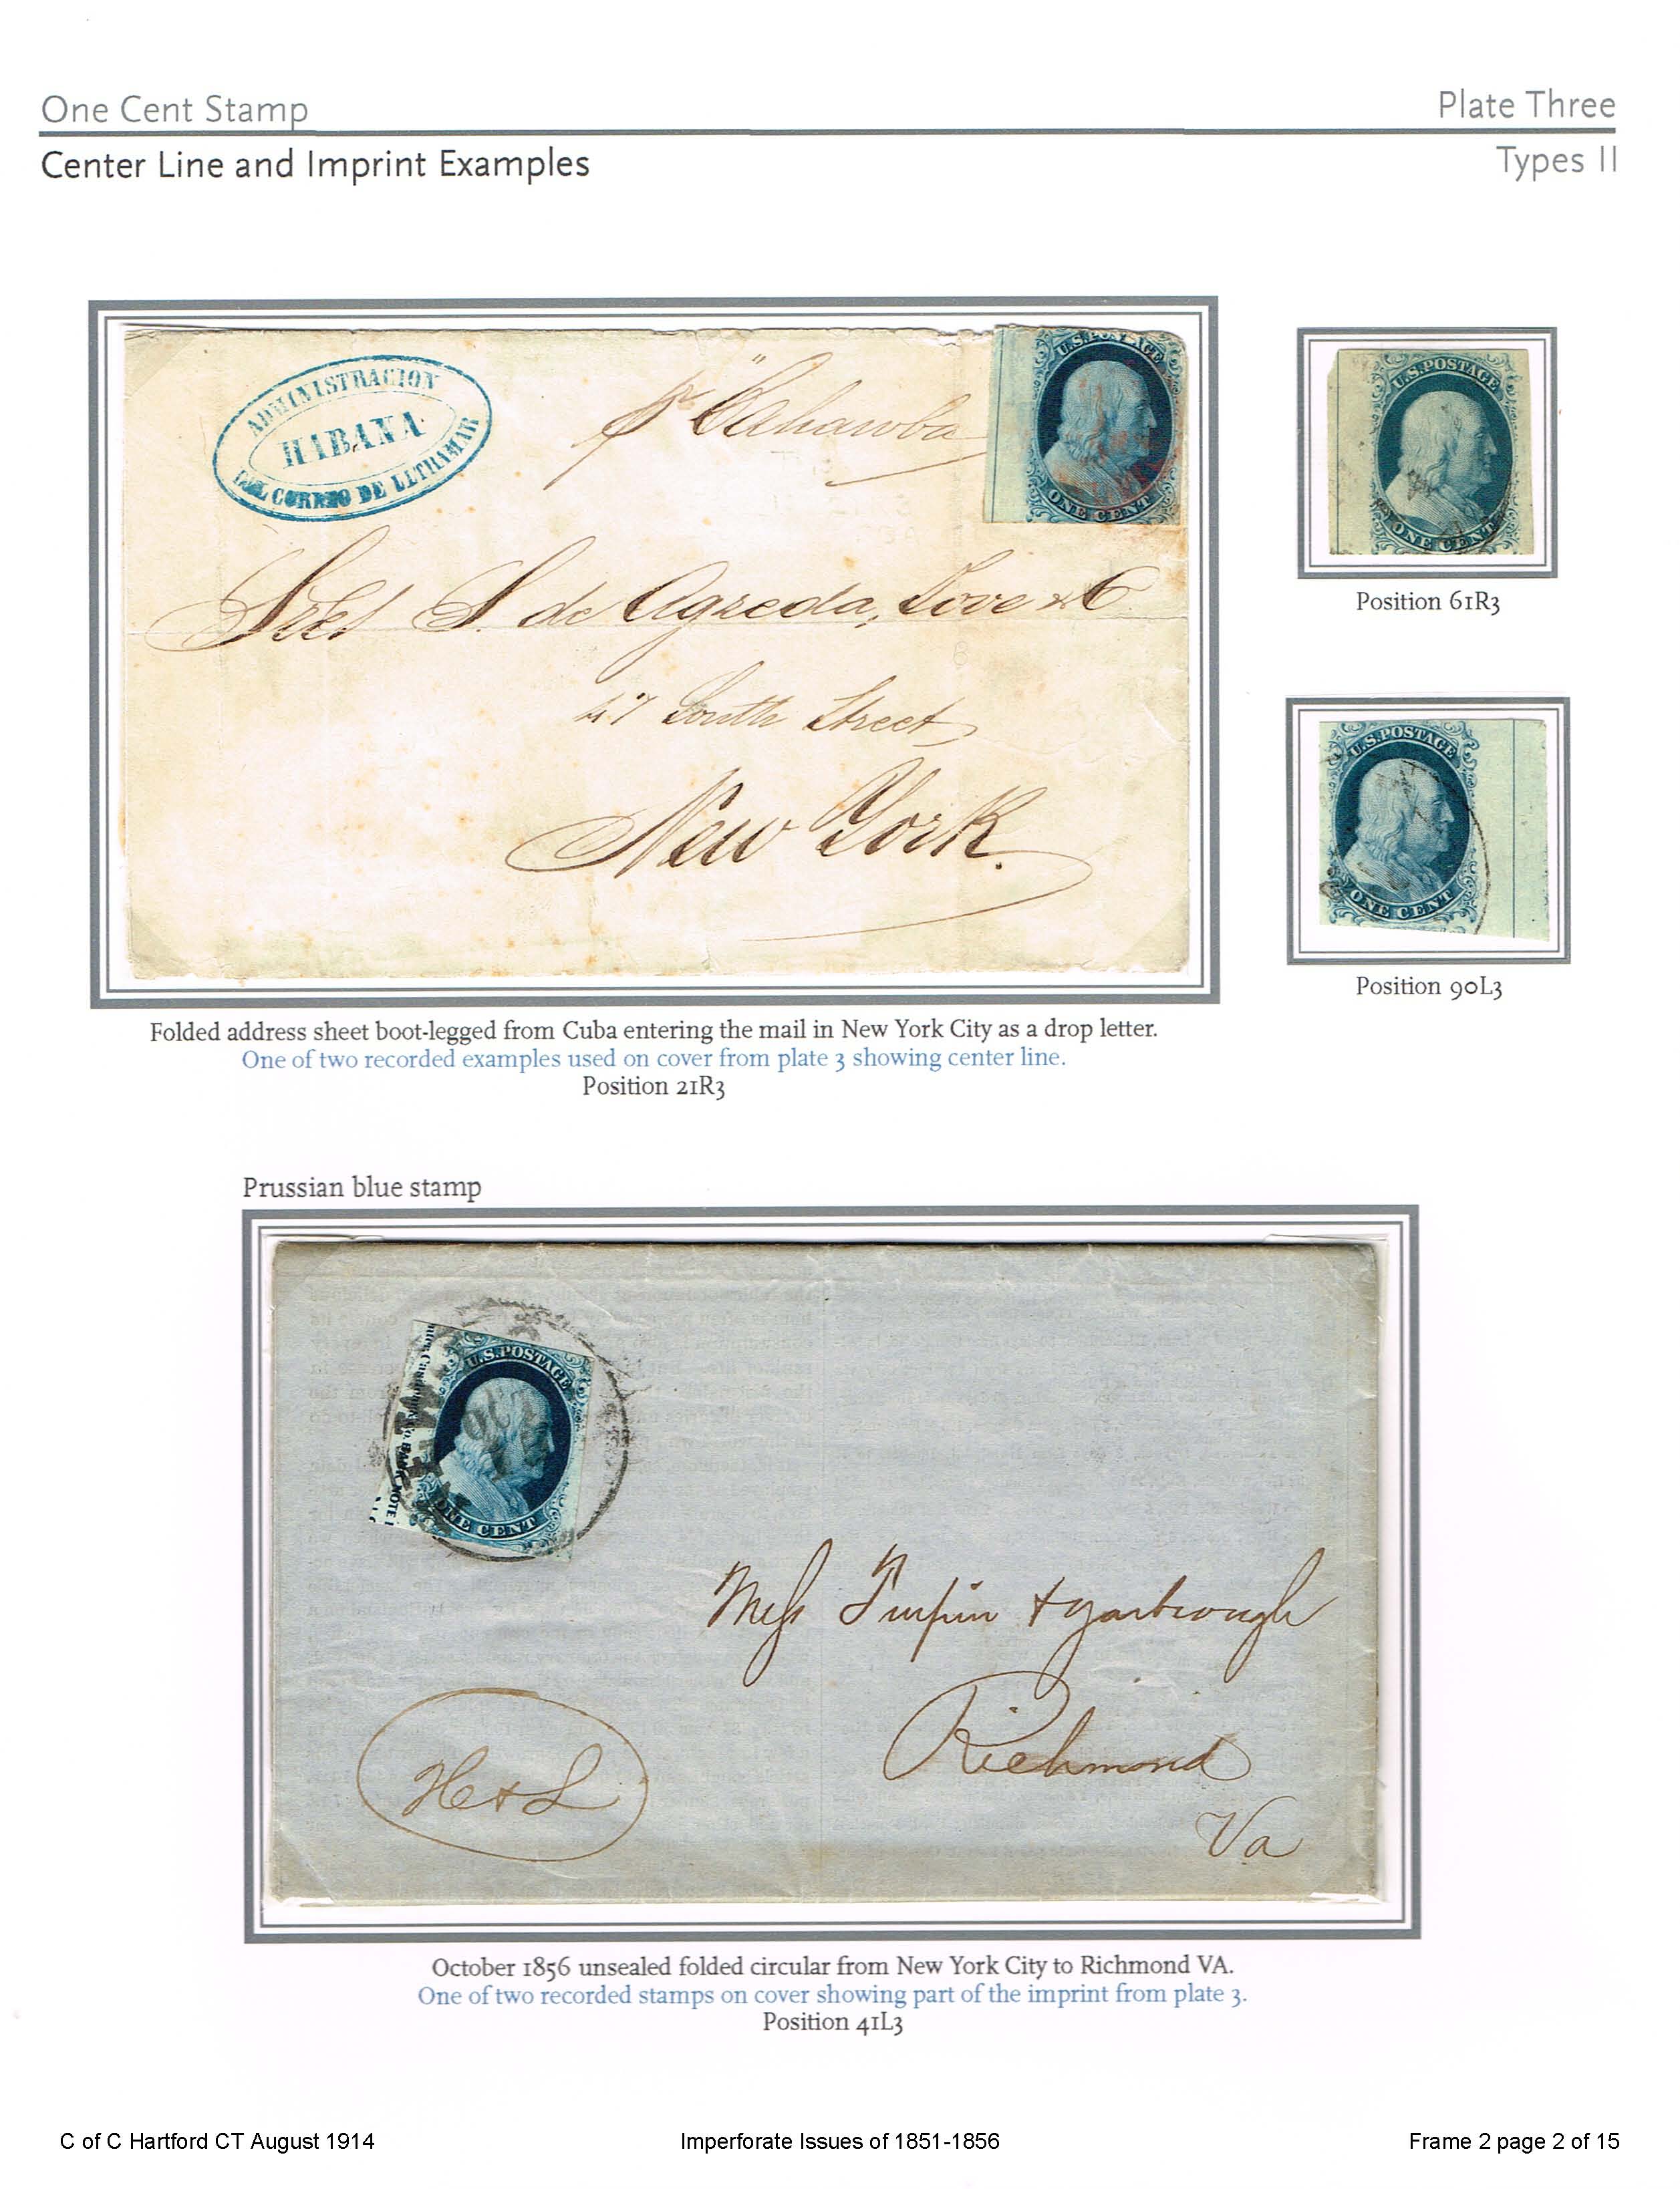 One Cent Stamp
Plate Three
Center Line and Imprint Examples
Types II
ADMINISTRACION
HABANA
DEL CORREO DE ULTRAMAR
pr "Cahawba
U.S. POSTAGE
ONE CENT
Sres S. de Agreda, Jove & C
47 South Street
New York.
U.S. POSTAGE
ONE CENT
Position 61R3
U.S. POSTAGE
ONE CENT
Position 90L3
Folded address sheet boot-legged from Cuba entering the mail in New York City as a drop letter.
One of two recorded examples used on cover from plate 3 showing center line.
Position 21R3
Prussian blue stamp
BANK NOTE
U.S. POSTAGE
OCT
ONE CENT
Mess Turpin & Yarbrough
Richmond
Va
H & L
October 1856 unsealed folded circular from New York City to Richmond VA.
One of two recorded stamps on cover showing part of the imprint from plate 3.
Position 41L3
C of C Hartford CT August 1914
Imperforate Issues of 1851-1856
Frame 2 page 2 of 15